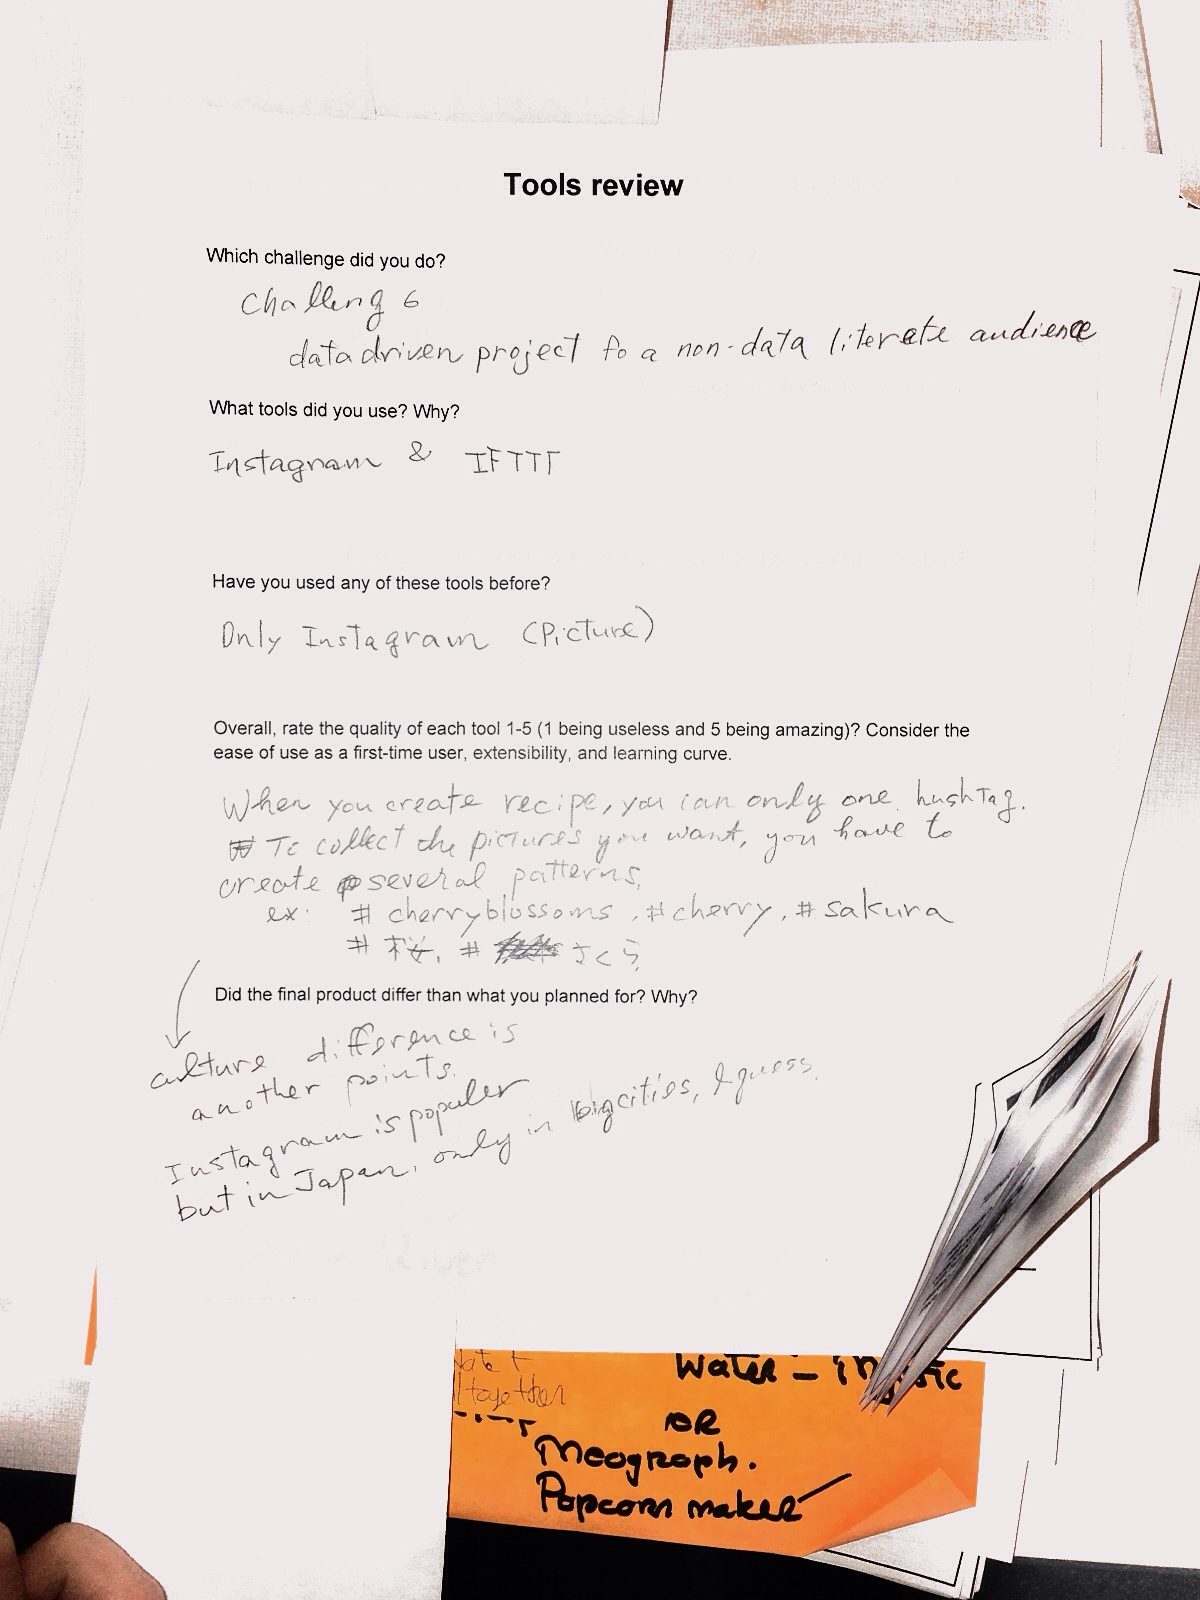 Tools review
Which challenge did you do?
Challeng 6
data driven project fo a non-data literate audience
What tools did you use? Why?
Instagram & IFTTT
Have you used any of these tools before?
Only Instagram (Picture)
Overall, rate the quality of each tool 1-5 (1 being useless and 5 being amazing)? Consider the
ease of use as a first-time user, extensibility, and learning curve.
When you create recipe, you can only one hushTag.
To collect the pictures you want, you have to
create several patterns,
ex: # cherryblossoms, #cherry, #sakura
# 桜, # さくら,
Did the final product differ than what you planned for? Why?
culture difference is
another points.
Instagram is populer
but in Japan, only in big cities, I guess.
together
Water -
OR
Meograph.
Popcorn maker